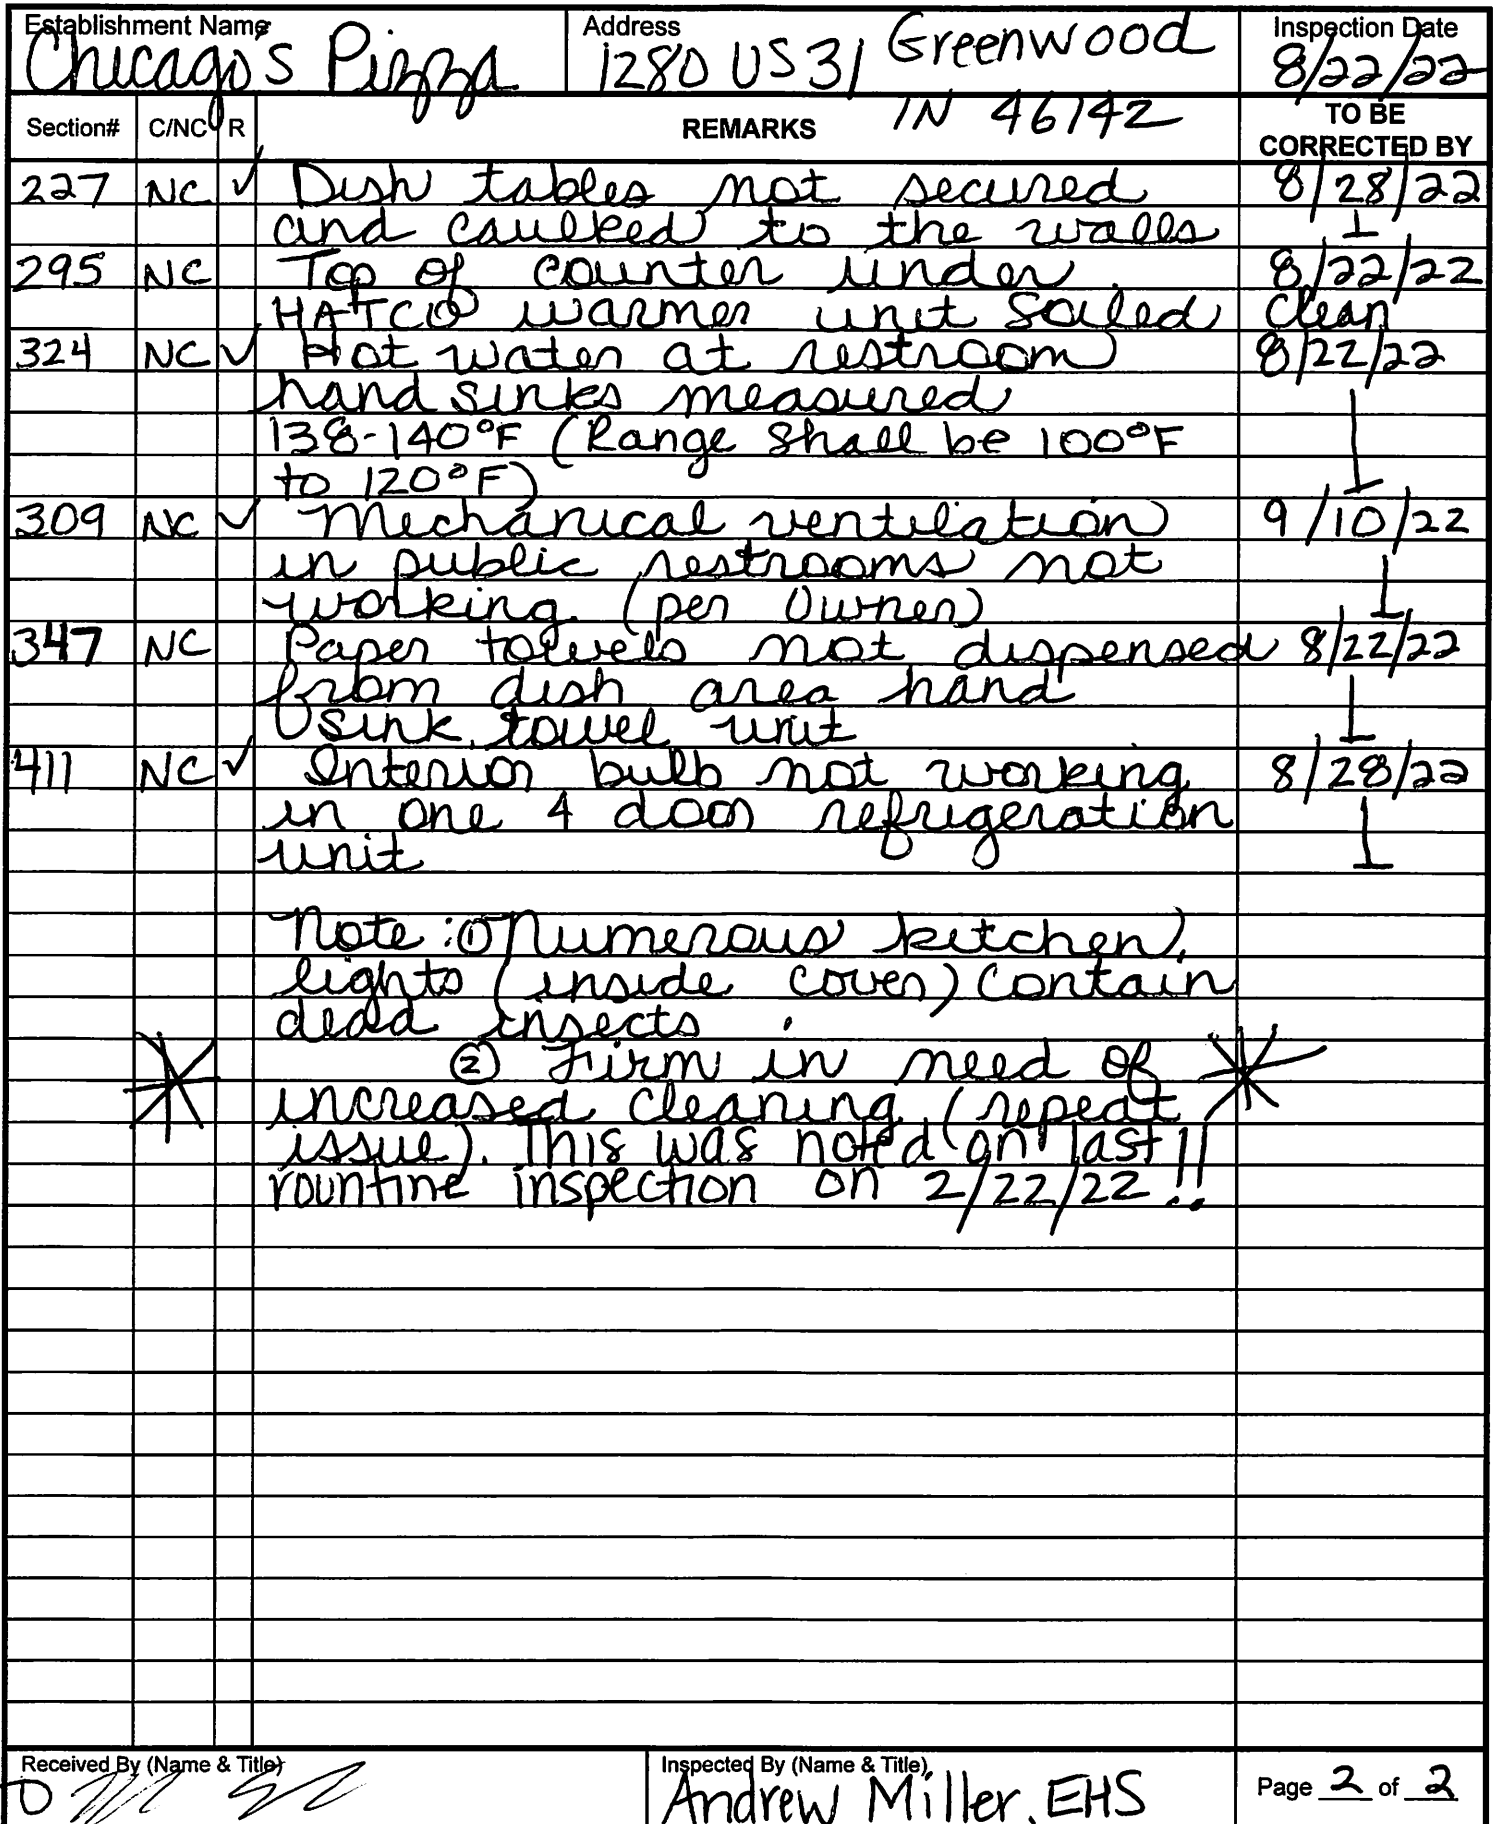 Establishment Name Address Inspection Date
Chicago's Pizza 1280 US 31 Greenwood 8/22/22
IN 46142
Section# C/NC R REMARKS TO BE
CORRECTED BY
227 NC ✓ Dish tables not secured 8/28/22
and caulked to the walls
295 NC Top of counter under 8/22/22
HATCO warmer unit soiled Clean
324 NC ✓ Hot water at restroom 8/22/22
hand sinks measured
138-140°F (Range shall be 100°F
to 120°F)
309 NC ✓ Mechanical ventilation 9/10/22
in public restrooms not
working. (per Owner)
347 NC Paper towels not dispensed 8/22/22
from dish area hand
sink towel unit
411 NC ✓ Interior bulb not working 8/28/22
in one 4 door refrigeration
unit
Note: ① Numerous kitchen
lights (inside cover) contain
dead insects.
② Firm in need of
increased cleaning (repeat
issue). This was noted on last
rountine inspection on 2/22/22!!
Received By (Name & Title) Inspected By (Name & Title)
Andrew Miller, EHS Page 2 of 2